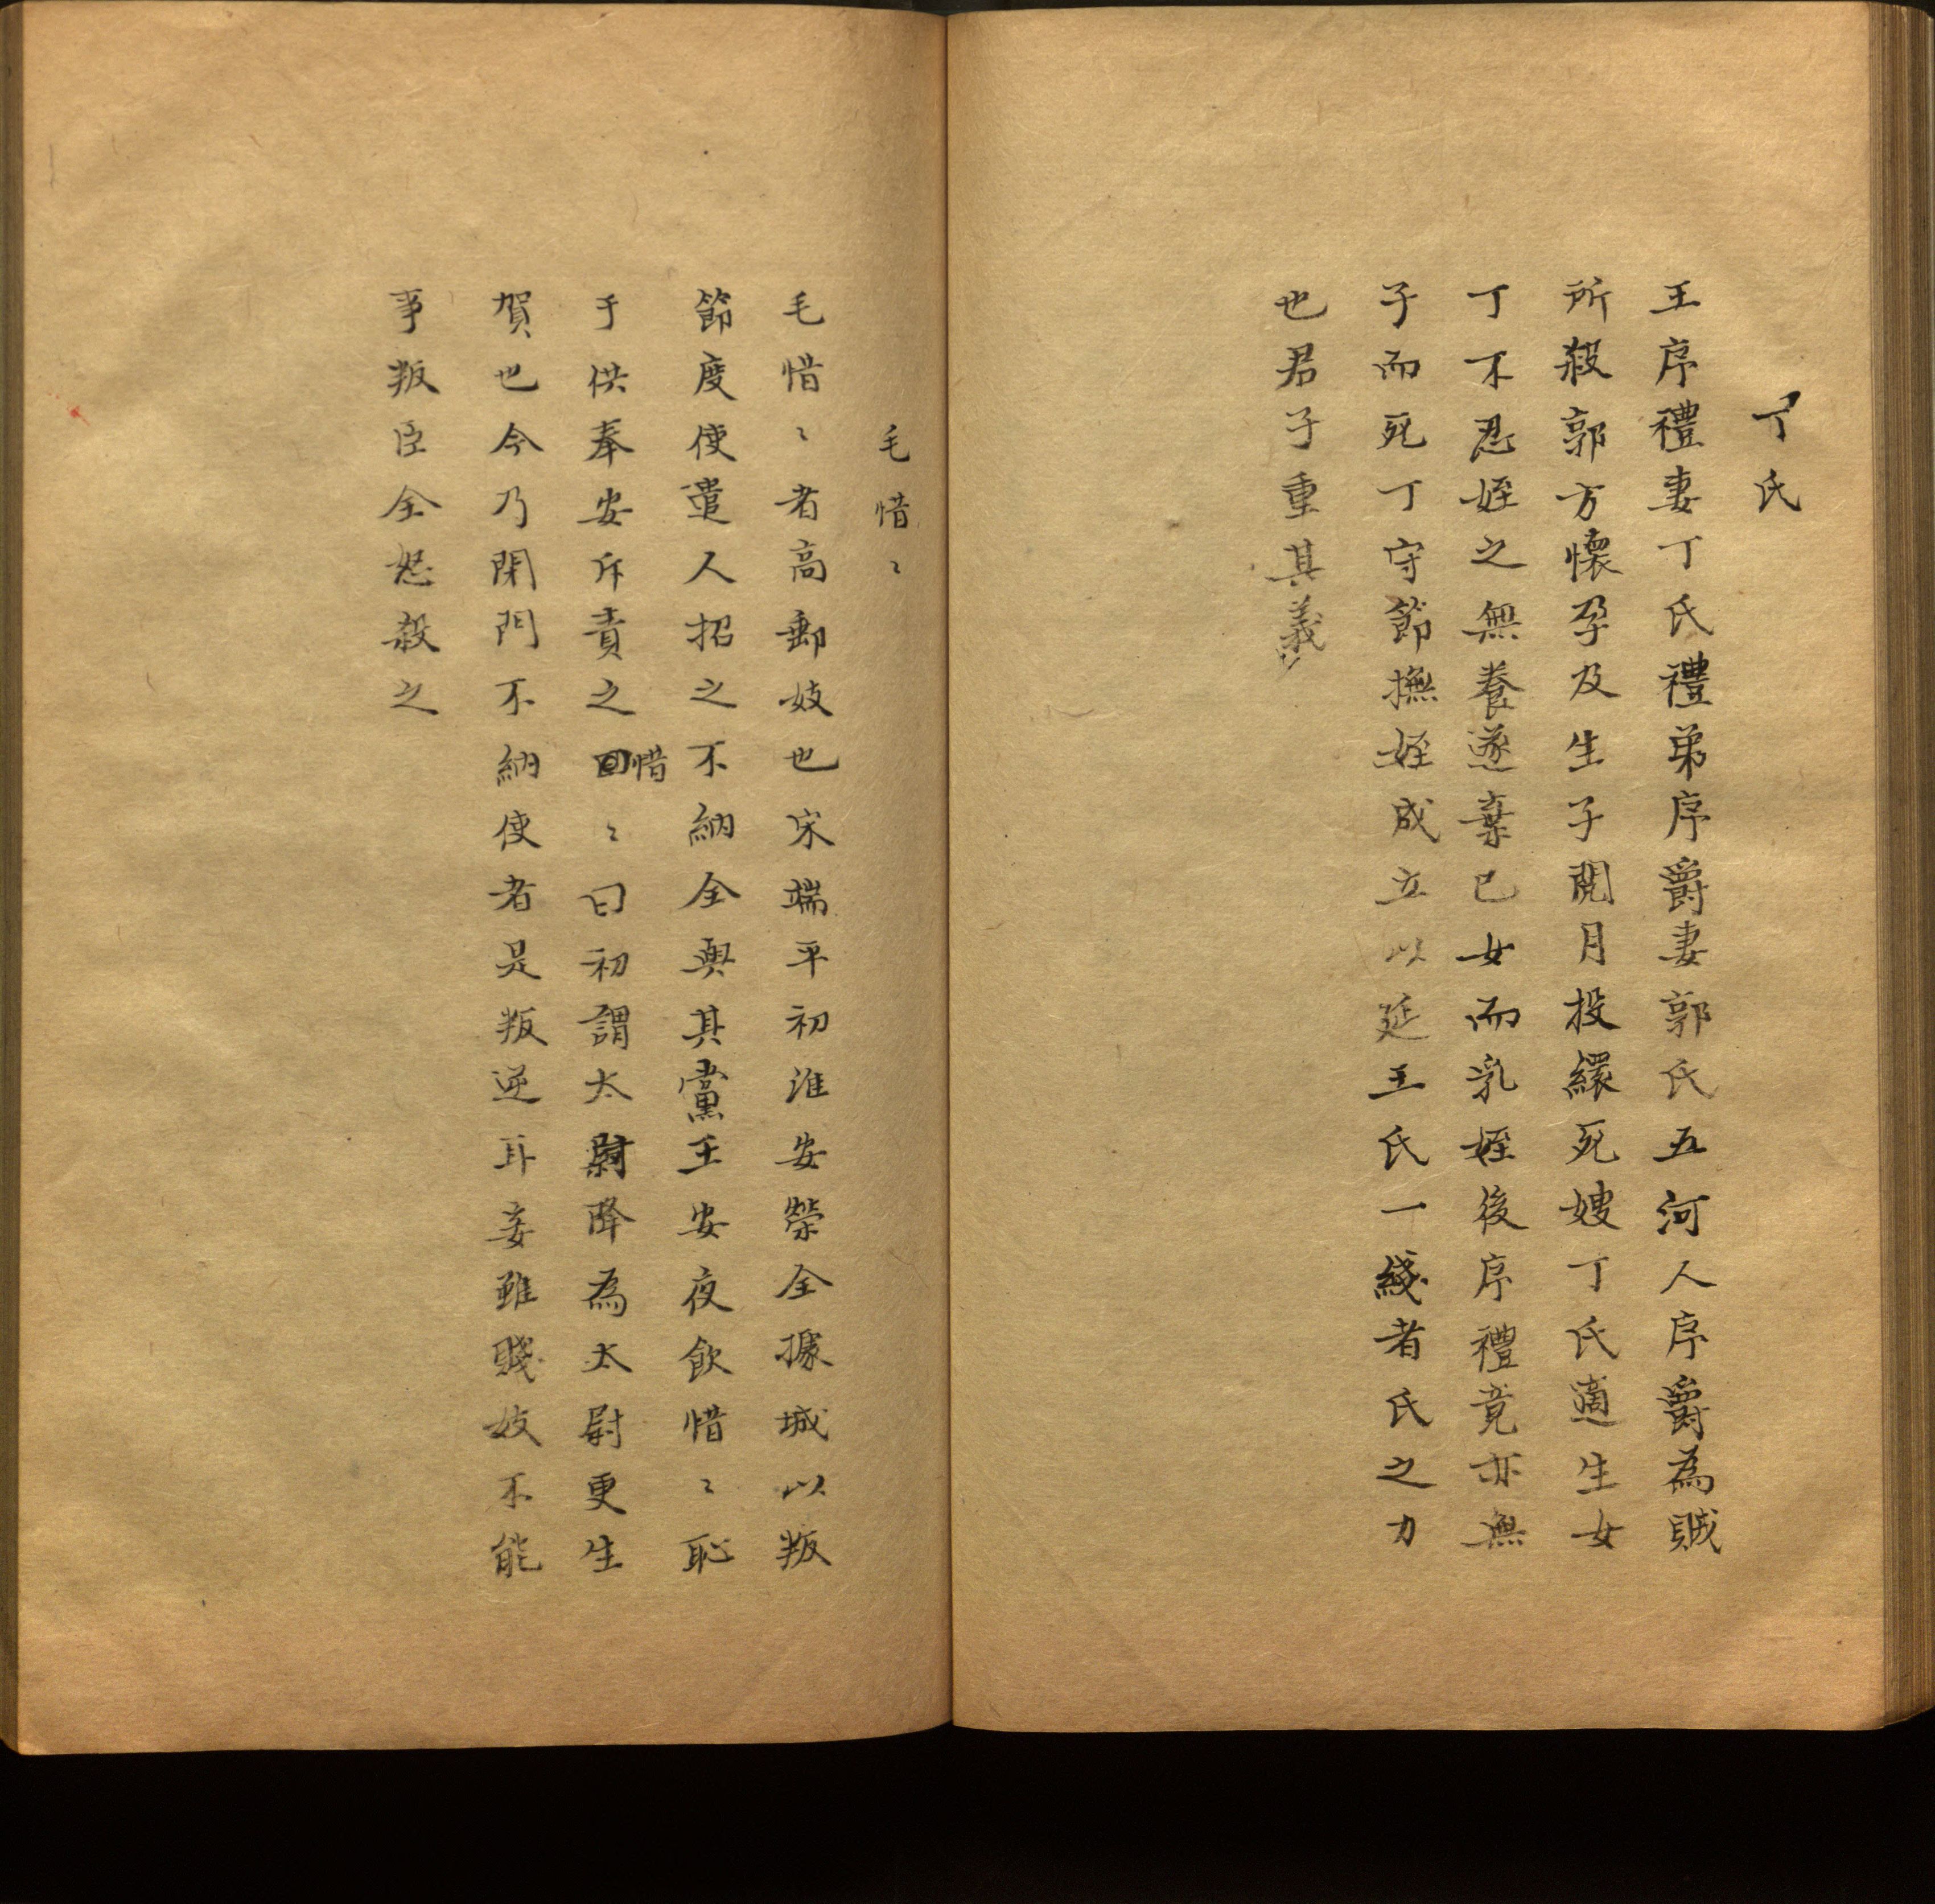 丁氏
王序禮妻丁氏禮弟序爵妻郭氏五河人序爵為賊
所殺郭方懷孕及生子閱月投繯死嫂丁氏適生女
丁不忍姪之無養遂棄已女而乳姪後序禮竟亦無
子而死丁守節撫姪成立以延王氏一綫者氏之力
也君子重其義
毛惜〻
毛惜〻者高郵妓也宋端平初淮安榮全據城以叛
節度使遣人招之不納全與其黨王安夜飲惜〻恥
于供奉安斥責之惜〻曰初謂太尉降為太尉更生
賀也今乃閉門不納使者是叛逆耳妾雖賤妓不能
事叛臣全怒殺之